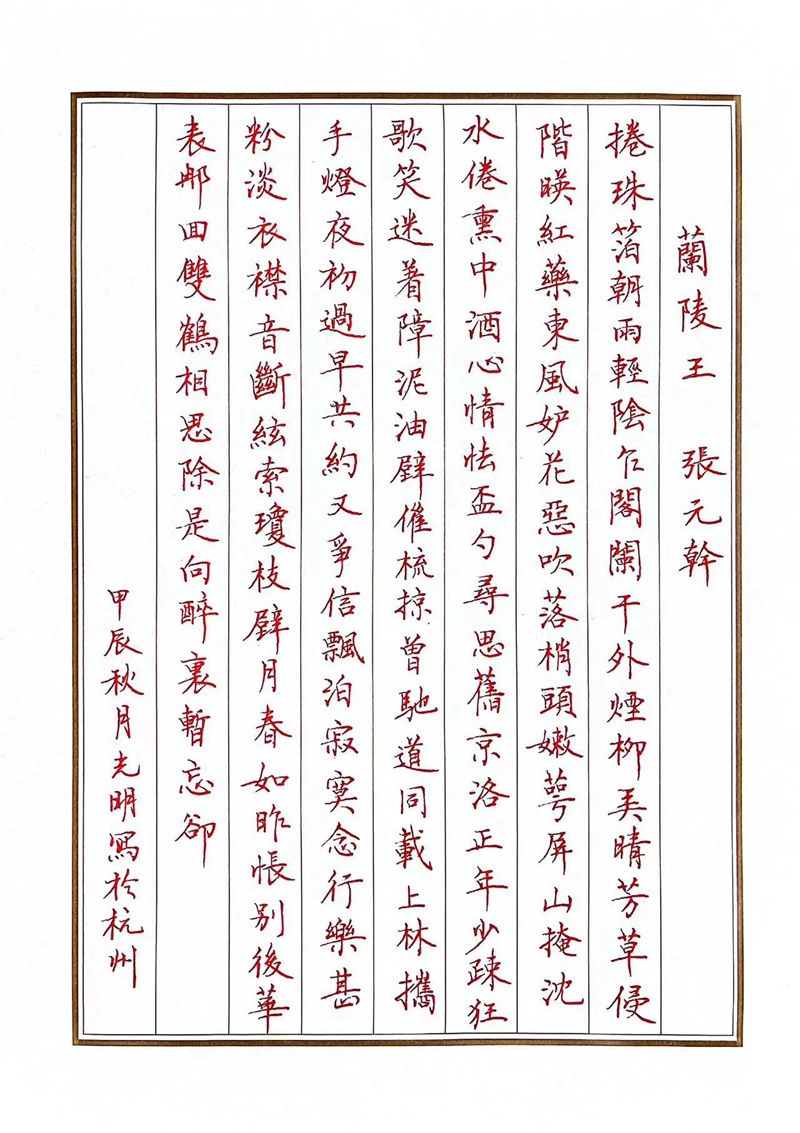 蘭陵王 張元幹
捲珠箔朝雨輕陰乍閣闌干外煙柳弄晴芳草侵
階暎紅藥東風妒花惡吹落梢頭嫩萼屏山掩沈
水倦熏中酒心情怯盃勺尋思舊京洛正年少疎狂
歌笑迷着障泥油壁催梳掠曾馳道同載上林攜
手燈夜初過早共約又爭信飄泊寂寞念行樂甚
粉淡衣襟音斷絃索瓊枝璧月春如昨悵別後華
表那回雙鶴相思除是向醉裏暫忘卻
甲辰秋月光明寫於杭州